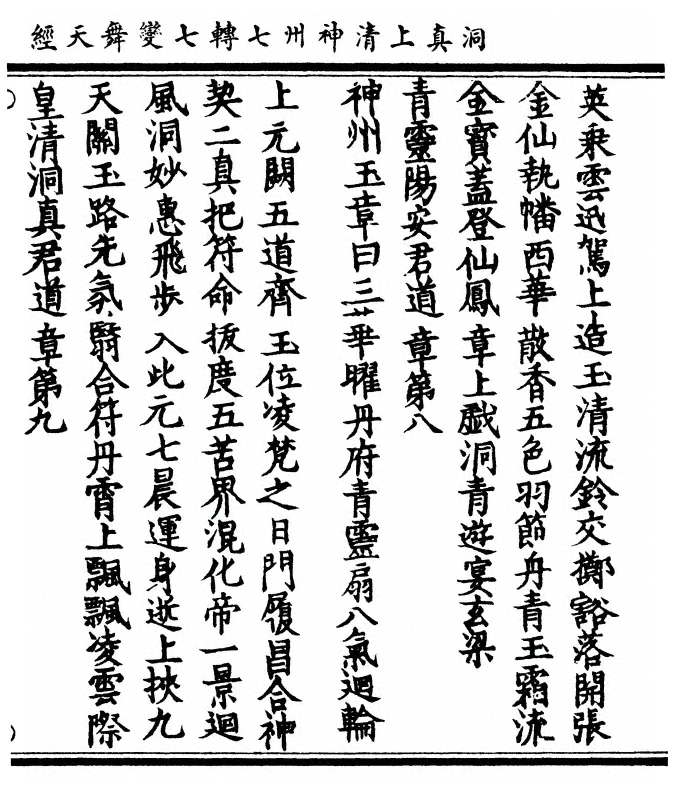 洞真上清神州七轉七變舞天經
英乘雲迅駕上造玉清流鈴交擲豁落開張
金仙執幡西華散香五色羽節丹青玉霜流
金寶蓋登仙鳳章上戲洞青遊宴玄梁
青靈陽安君道章第八
神州玉章曰三華曜丹府青靈扇八氣迴輪
上元闕五道齊玉位凌梵之日門履昌合神
契二真把符命拔度五苦界混化帝一景迴
風洞妙惠飛步入此元七晨運身逝上挾九
天關玉路先氛翳合符丹霄上飄飄凌雲際
皇清洞真君道章第九